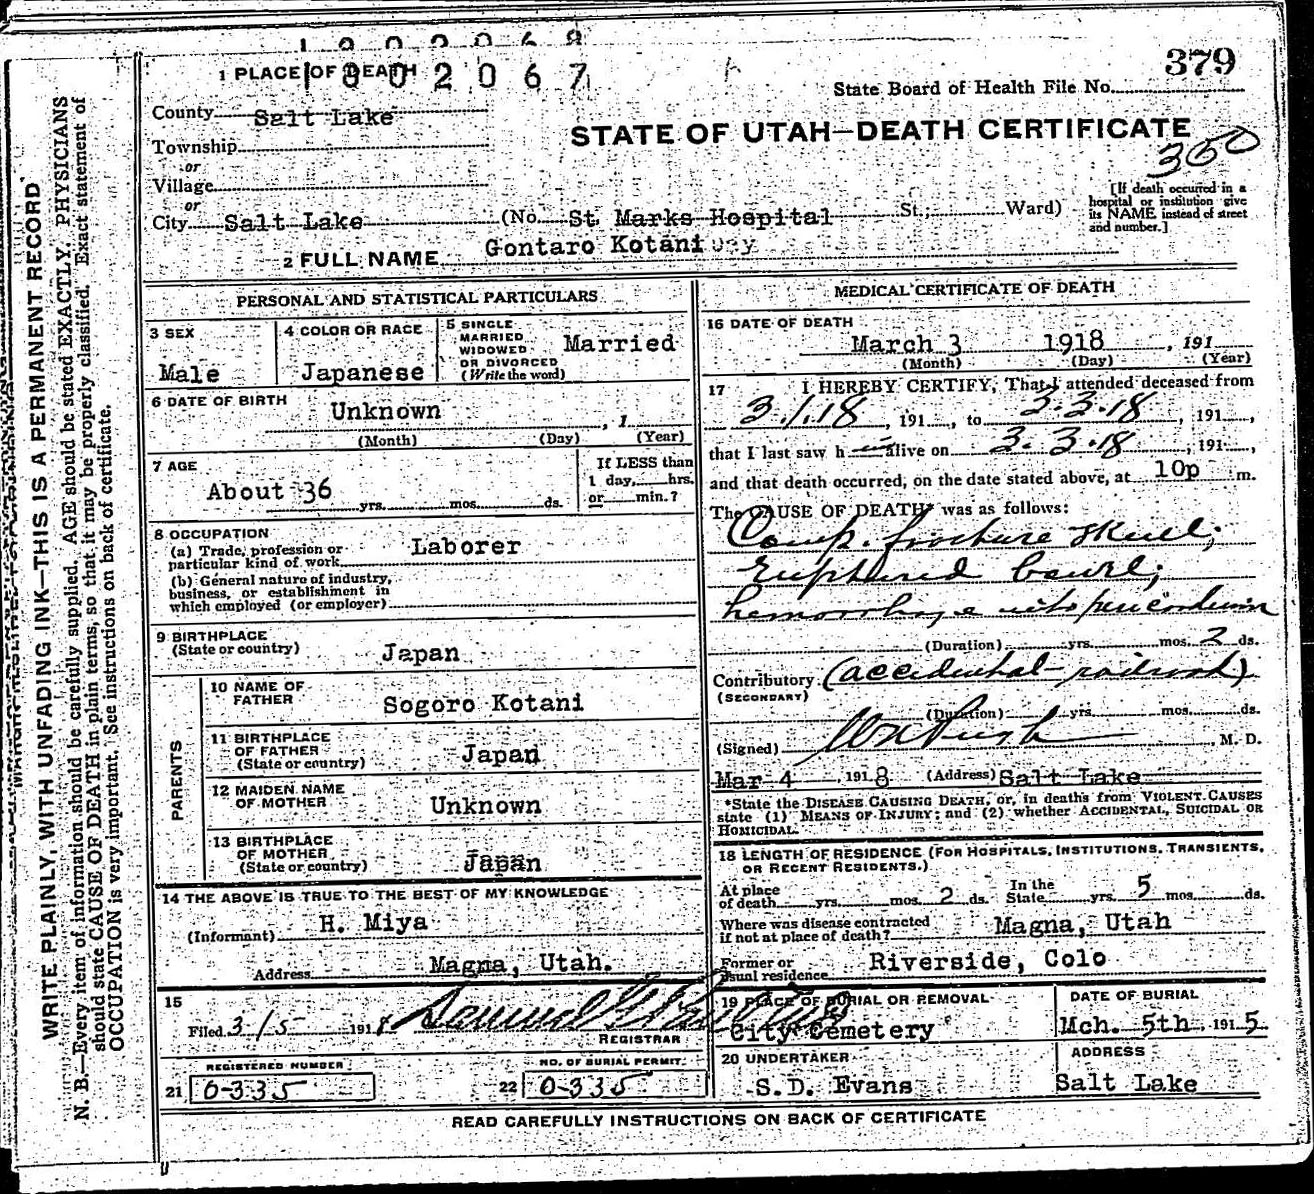 1 9 0 2 0 6 8
1 PLACE OF DEATH 1 0 0 2 0 6 7
379
State Board of Health File No.
County Salt Lake
STATE OF UTAH—DEATH CERTIFICATE
350
Township
or
Village
or
City Salt Lake (No. St. Marks Hospital St.; Ward)
[If death occurred in a
hospital or institution give
its NAME instead of street
and number.]
2 FULL NAME Gontaro Kotani
PERSONAL AND STATISTICAL PARTICULARS
3 SEX
Male
4 COLOR OR RACE
Japanese
5 SINGLE
MARRIED
WIDOWED
OR DIVORCED
(Write the word)
Married
6 DATE OF BIRTH
Unknown , 1
(Month) (Day) (Year)
7 AGE
About 36 yrs. mos. ds.
If LESS than
1 day, hrs.
or min.?
8 OCCUPATION
(a) Trade, profession or
particular kind of work Laborer
(b) General nature of industry,
business, or establishment in
which employed (or employer)
9 BIRTHPLACE
(State or country) Japan
PARENTS
10 NAME OF
FATHER Sogoro Kotani
11 BIRTHPLACE
OF FATHER
(State or country) Japan
12 MAIDEN NAME
OF MOTHER Unknown
13 BIRTHPLACE
OF MOTHER
(State or country) Japan
14 THE ABOVE IS TRUE TO THE BEST OF MY KNOWLEDGE
(Informant) H. Miya
Address Magna, Utah.
15
Filed 3/5 1918 Samuel G
REGISTRAR
REGISTERED NUMBER
21 0-335
NO. OF BURIAL PERMIT
22 0-335
MEDICAL CERTIFICATE OF DEATH
16 DATE OF DEATH
March 3 1918 , 191
(Month) (Day) (Year)
17 I HEREBY CERTIFY, That I attended deceased from
3.1.18 , 191 , to 3.3.18 , 191 ,
that I last saw h alive on 3.3.18 , 191 ,
and that death occurred, on the date stated above, at 10p m.
The CAUSE OF DEATH* was as follows:
Comp. fracture skull;
ruptured bowel;
hemorrhage into pericardium
(Duration) yrs. mos. 2 ds.
Contributory (accidental railroad)
(SECONDARY)
(Duration) yrs. mos. ds.
(Signed) Wm Pugh , M. D.
Mar 4 , 1918 (Address) Salt Lake
*State the DISEASE CAUSING DEATH, or, in deaths from VIOLENT CAUSES
state (1) MEANS OF INJURY; and (2) whether ACCIDENTAL, SUICIDAL OR
HOMICIDAL.
18 LENGTH OF RESIDENCE (FOR HOSPITALS, INSTITUTIONS, TRANSIENTS,
OR RECENT RESIDENTS.)
At place
of death yrs. mos. 2 ds. In the
State yrs. 5 mos. ds.
Where was disease contracted
if not at place of death? Magna, Utah
Former or
usual residence Riverside, Colo
19 PLACE OF BURIAL OR REMOVAL
City Cemetery
DATE OF BURIAL
Mch. 5th 1915
20 UNDERTAKER
S.D. Evans
ADDRESS
Salt Lake
READ CAREFULLY INSTRUCTIONS ON BACK OF CERTIFICATE
WRITE PLAINLY, WITH UNFADING INK—THIS IS A PERMANENT RECORD
N. B.—Every item of information should be carefully supplied. AGE should be stated EXACTLY. PHYSICIANS
should state CAUSE OF DEATH in plain terms, so that it may be properly classified. Exact statement of
OCCUPATION is very important. See instructions on back of certificate.